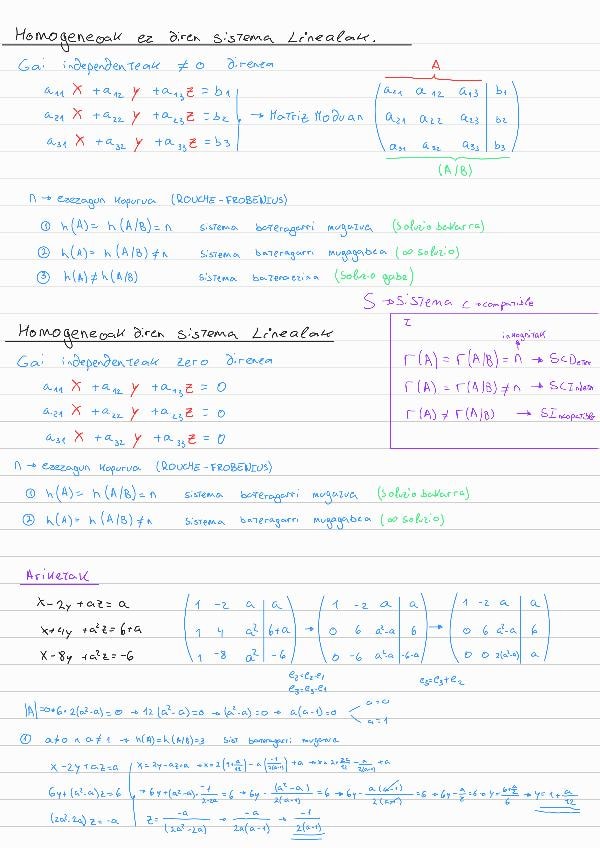 Homogeneoak ez diren sistema Linealak.
Gai independenteak ≠0 direnea
a11 X + a12 y + a13 z = b1
a21 X + a22 y + a23 z = b2 → Matriz Moduan
a31 X + a32 y + a33 z = b3
A
a11 a12 a13 | b1
a21 a22 a23 | b2
a31 a32 a33 | b3
(A/B)
n → ezezagun kopurua (ROUCHE-FROBENIUS)
① h(A) = h(A/B) = n sistema bateragarri mugatua (soluzio bakarra)
② h(A) = h(A/B) ≠ n sistema bateragarri mugagabea (∞ soluzio)
③ h(A) ≠ h(A/B) sistema bateraezina (soluzio gabe)
S → sistema c → compatible
I
inkognitak
r(A) = r(A/B) = n → SCDeter
r(A) = r(A/B) ≠ n → SCIndeter
r(A) ≠ r(A/B) → SIncopatible
Homogeneoak diren sistema Linealak
Gai independenteak zero direnea
a11 X + a12 y + a13 z = 0
a21 X + a22 y + a23 z = 0
a31 X + a32 y + a33 z = 0
n → ezezagun kopurua (ROUCHE-FROBENIUS)
① h(A) = h(A/B) = n sistema bateragarri mugatua (soluzio bakarra)
② h(A) = h(A/B) ≠ n sistema bateragarri mugagabea (∞ soluzio)
Ariketak
x - 2y + az = a
x + 4y + a²z = 6 + a
x - 8y + a²z = -6
1 -2 a | a → 1 -2 a | a → 1 -2 a | a
1 4 a² | 6+a → 0 6 a²-a | 6 → 0 6 a²-a | 6
1 -8 a² | -6 → 0 -6 a²-a | -6-a → 0 0 2(a²-a) | a
e2=e2-e1
e3=e3-e1
e3=e3+e2
|A|=0→6·2(a²-a)=0 → 12(a²-a)=0 → (a²-a)=0 → a(a-1)=0
a=0
a=1
① a≠0 ∧ a≠1 → h(A)=h(A/B)=3 Sist bateragarri mugatua
x - 2y + az = a
6y + (a²-a)z = 6
(2a²-2a)z = -a z = -a/(2a²-2a) → -a/2a(a-1) → -1/2(a-1)